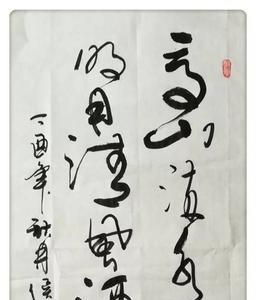 高山流水
明月清风酒
丁酉年秋月